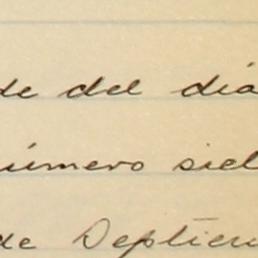 de del día
número siet
de Septiem